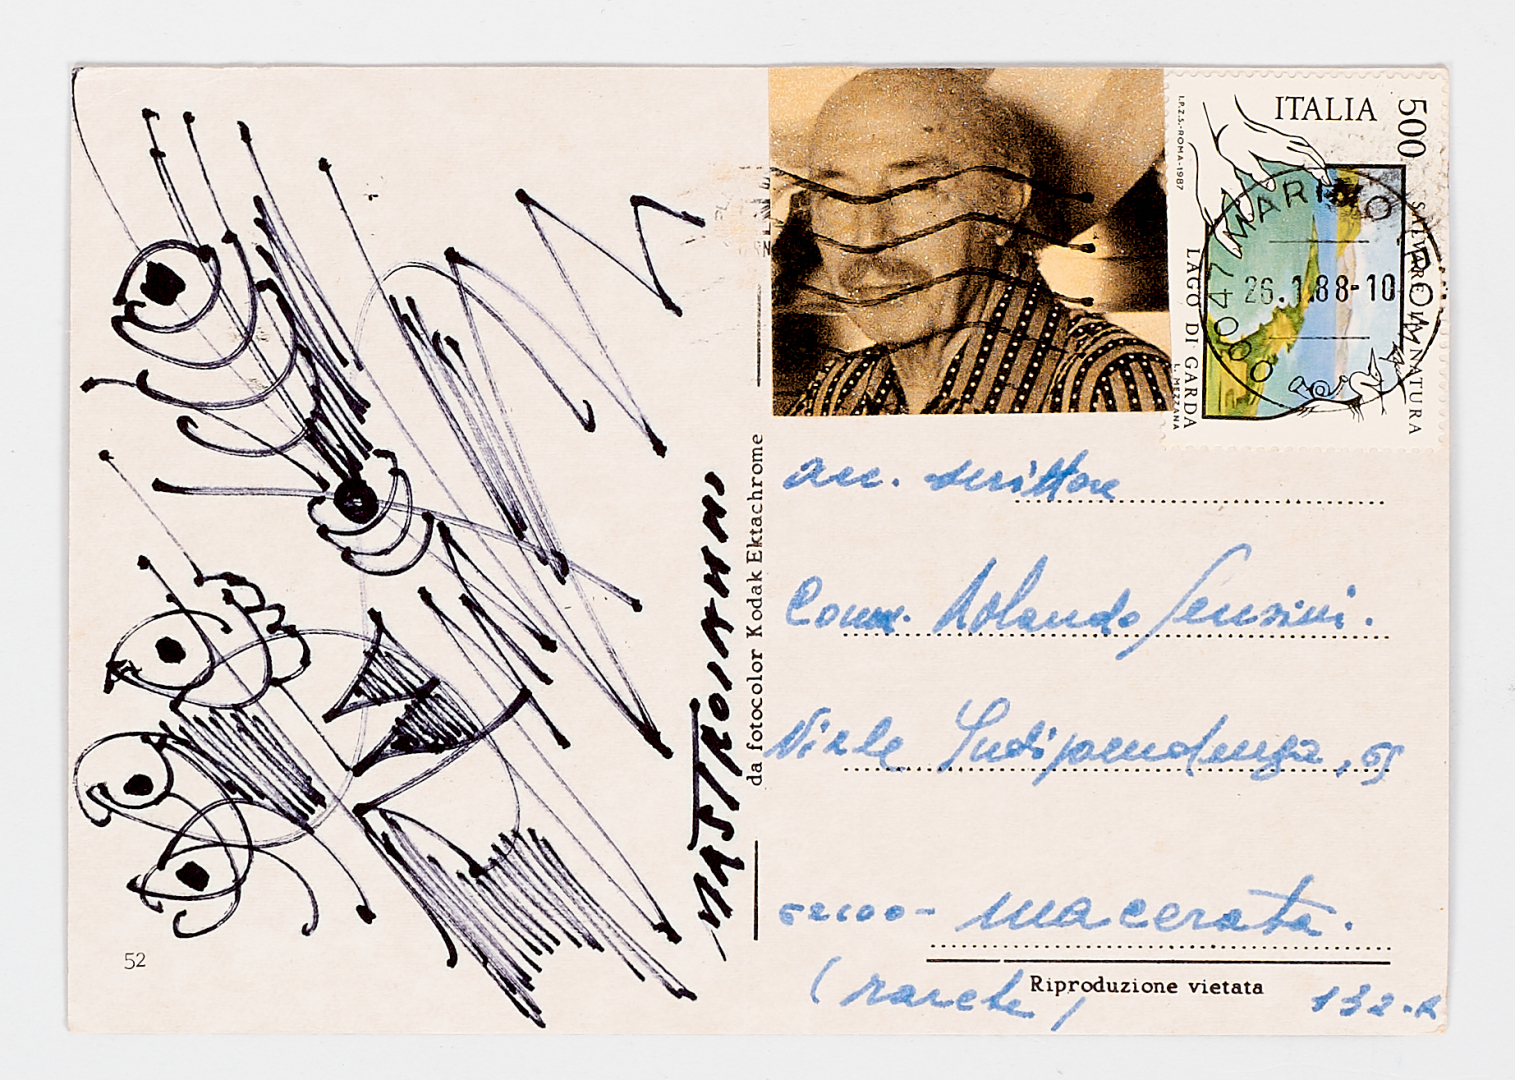 ITALIA
500
SALVARE LA NATURA
I.P.Z.S.-ROMA-1987
LAGO DI GARDA
L. MEZZANA
00047 MARINO ROMA
26.1.88-10
MASTROIANNI
da fotocolor Kodak Ektachrome
scrittore
Comm. Rolando Sensini.
Viale Indipendenza,
62100- macerata.
Riproduzione vietata
132-R
52